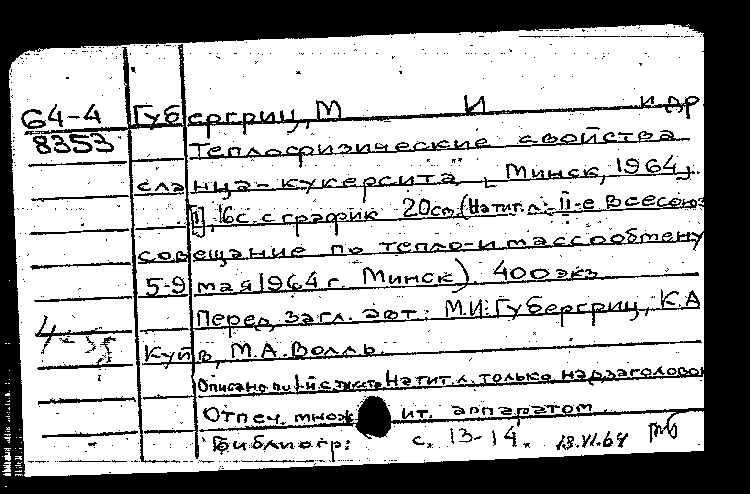 64-4 Губергриц, М И и др
8353 Теплофизические свойства
сланца-кукерсита. [Минск, 1964].
[1], 16с. с график. 20см. (На тит. л.: II-е Всесоюз
совещание по тепло- и массообмену
5-9 мая 1964 г. Минск). 400 экз
Перед загл. авт: М.И. Губергриц, К.А
Куйв, М.А. Волль.
Описано по 1-й с. текста На тит. л. только надзаголовок
Отпеч. множит. аппаратом.
Библиогр: с. 13-14. 13.VI.64